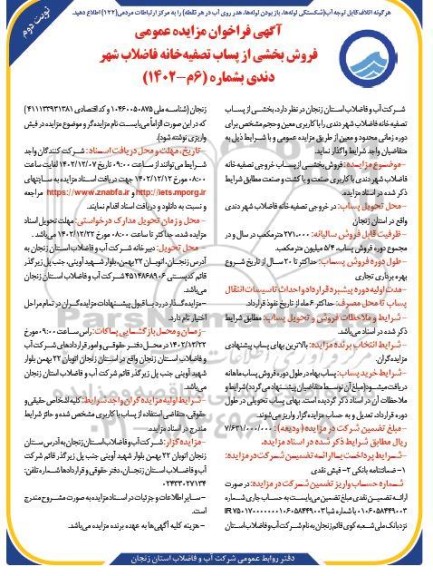 هرگونه اتلاف قابل توجه آب (شکستگی لوله‌ها، باز بودن لوله‌ها، هدر روی آب در هر نقطه) را به مرکز ارتباطات مردمی (۱۲۲) اطلاع دهید.
نوبت دوم
آگهی فراخوان مزایده عمومی
فروش بخشی از پساب تصفیه‌خانه فاضلاب شهر
دندی بشماره (۶م-۱۴۰۲)
شرکت آب و فاضلاب استان زنجان در نظر دارد، بخشی از پساب
تصفیه خانه فاضلاب شهر دندی را با کاربری معین و حجم مشخص برای
دوره زمانی محدود و معین از طریق مزایده عمومی و با شرایط ذیل به
متقاضیان واجد شرایط واگذار نماید.
-موضوع مزایده: فروش بخشی از پساب خروجی تصفیه خانه
فاضلاب شهر دندی با کاربری صنعت و یا کشت و صنعت مطابق شرایط
ذکر شده در اسناد مزایده.
-محل تحویل پساب: در خروجی تصفیه خانه فاضلاب شهر دندی
واقع در استان زنجان
-ظرفیت قابل فروش سالیانه: ۲۷۱,۰۰۰ مترمکعب در سال و در
مجموع دوره فروش پساب، ۵/۴ میلیون مترمکعب.
-طول دوره فروش پساب: حداکثر تا ۲۰ سال از تاریخ شروع
بهره برداری تجاری
-مدت اولیه دوره پیشبرد قرارداد و احداث تاسیسات انتقال
پساب تا محل مصرف: حداکثر ۶ ماه از تاریخ نفوذ قرارداد.
-شرایط و ملاحظات فروش و تحویل پساب: مطابق شرایط
ذکر شده در اسناد می‌باشد.
-شرایط انتخاب برنده مزایده: بالاترین بهای پساب پیشنهادی
مزایده‌گران
-شرایط خرید پساب: بهاء پساب در طول دوره فروش پساب ماهانه
دریافت میشود (مبلغ آن توسط متقاضیان پیشنهاد می گردد) شرایط و
ملاحظات آن در اسناد ذکر گردیده است. بهای پساب تحویلی در طول
دوره قرارداد تعدیل و به حساب مزایده گزار واریز می‌شوند.
-مبلغ تضمین شرکت در مزایده (ودیعه): ۷/۶۳۱/۰۰۰/۰۰۰
ریال مطابق شرایط ذکر شده در اسناد مزایده.
-شرایط پرداخت یا ارائه تضمین شرکت در مزایده:
۱- ضمانتنامه بانکی ۲- فیش نقدی
-شماره حساب واریز تضمین شرکت در مزایده: در صورت
ارائه تضمین نقدی مبلغ تضمین می‌بایست به حساب جاری شماره
نزد بانک ملی شعبه کوی قائم زنجان به نام شرکت آب و فاضلاب استان
زنجان (شناسه ملی ۱۰۴۶۰۰۵۰۸۷۵ و کد اقتصادی ۴۱۱۱۳۳۹۳۱۳۸۱)
که در این صورت الزاماً می‌بایست نام مزایده‌گر و موضوع مزایده در فیش
واریزی نوشته شود).
-تاریخ، مهلت و محل دریافت اسناد: شرکت کنندگان واجد
شرایط می توانند از ساعت ۰۹:۰۰ تاریخ ۱۴۰۲/۱۲/۰۷ لغایت ساعت
۰۸:۰۰ مورخ ۱۴۰۲/۱۲/۱۲ جهت دریافت اسناد مزایده به سایتهای
http://iets.mporg.ir و https://www.znabfa.ir مراجعه
و نسبت به دانلود و دریافت اسناد اقدام نمایند.
-محل و زمان تحویل مدارک درخواستی: مهلت تحویل اسناد
مزایده شده، حداکثر تا ساعت ۰۸:۰۰ مورخ ۱۴۰۲/۱۲/۲۲ می‌باشد.
-محل تحویل: دبیرخانه شرکت آب و فاضلاب استان زنجان به
آدرس: زنجان، اتوبان ۲۲ بهمن، بلوار شهید آوینی، جنب پل زیر گذر
قائم کدپستی ۴۵۱۴۸۶۸۱۰۶ شرکت آب و فاضلاب استان زنجان
می‌باشد.
-مزایده گذار در رد یا قبول پیشنهادات مزایده گران در تمام مراحل
اختیار تام دارد.
-زمان و محل بازگشایی پاکات: راس ساعت ۰۹:۰۰ مورخ
۱۴۰۲/۱۲/۲۲ در محل دفتر حقوقی و امور قراردادهای شرکت آب
و فاضلاب استان زنجان واقع در استان زنجان اتوبان ۲۲ بهمن بلوار
شهید آوینی جنب پل زیر گذر قائم شرکت آب و فاضلاب استان زنجان
می‌باشد.
-شرایط اولیه مزایده گران واجد شرایط: کلیه اشخاص حقیقی و
حقوقی، متقاضی استفاده از پساب با کاربری مشخص شده و حائز شرایط
مندرج در اسناد مزایده.
-مزایده گزار: شرکت آب و فاضلاب استان زنجان به آدرس ستان
زنجان اتوبان ۲۲ بهمن بلوار شهید آوینی جنب پل زیر گذر قائم شرکت
آب و فاضلاب استان زنجان، دفتر حقوقی و قراردادها شماره تلفن:
۰۲۴۳۳۰۲۷۱۳۴
-سایر اطلاعات و جزئیات در اسناد مزایده به صورت مشروح مندرج
است.
-هزینه کلیه آگهی‌ها به عهده برنده مزایده می‌باشد.
دفتر روابط عمومی شرکت آب و فاضلاب استان زنجان